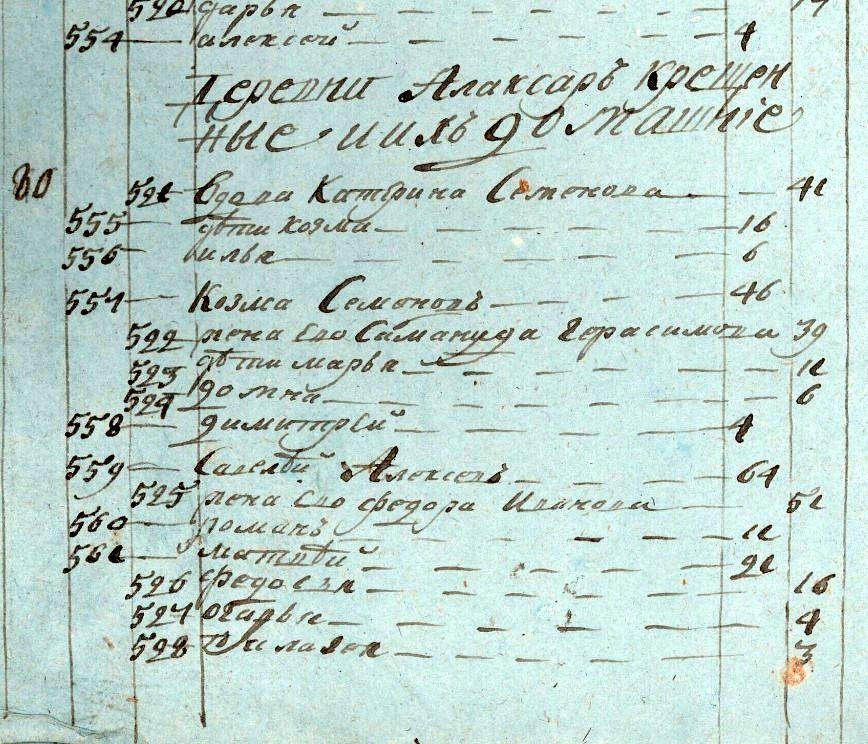 520 дарья — — — — — — 17
554 — алексей — — — — — 4
деревни Алаксаръ крещен
ные и ихъ домашніе
80 521 Вдова Катерина Семенова — — 41
555 — дѣти козма — — — — — 16
556 — илья — — — — — — 6
557 — Козма Семеновъ — — — — 46
522 жена ево Саманида Герасимова 39
523 дѣти марья — — — — — — 11
524 домна — — — — — — 6
558 — димитрей — — — — — 4
559 — Савелѣй Алексевъ — — — — 64
525 жена ево федора Иванова — — 51
560 — романъ — — — — — — 11
561 — матвѣй — — — — — 21
526 федосья — — — — — — 16
527 — — — — — — 4
528 — — — — — — 3